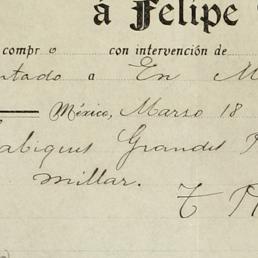 á Felipe
compro con intervención de
ntado a En M
México, Marzo 18
abiques Grandes P
millar.